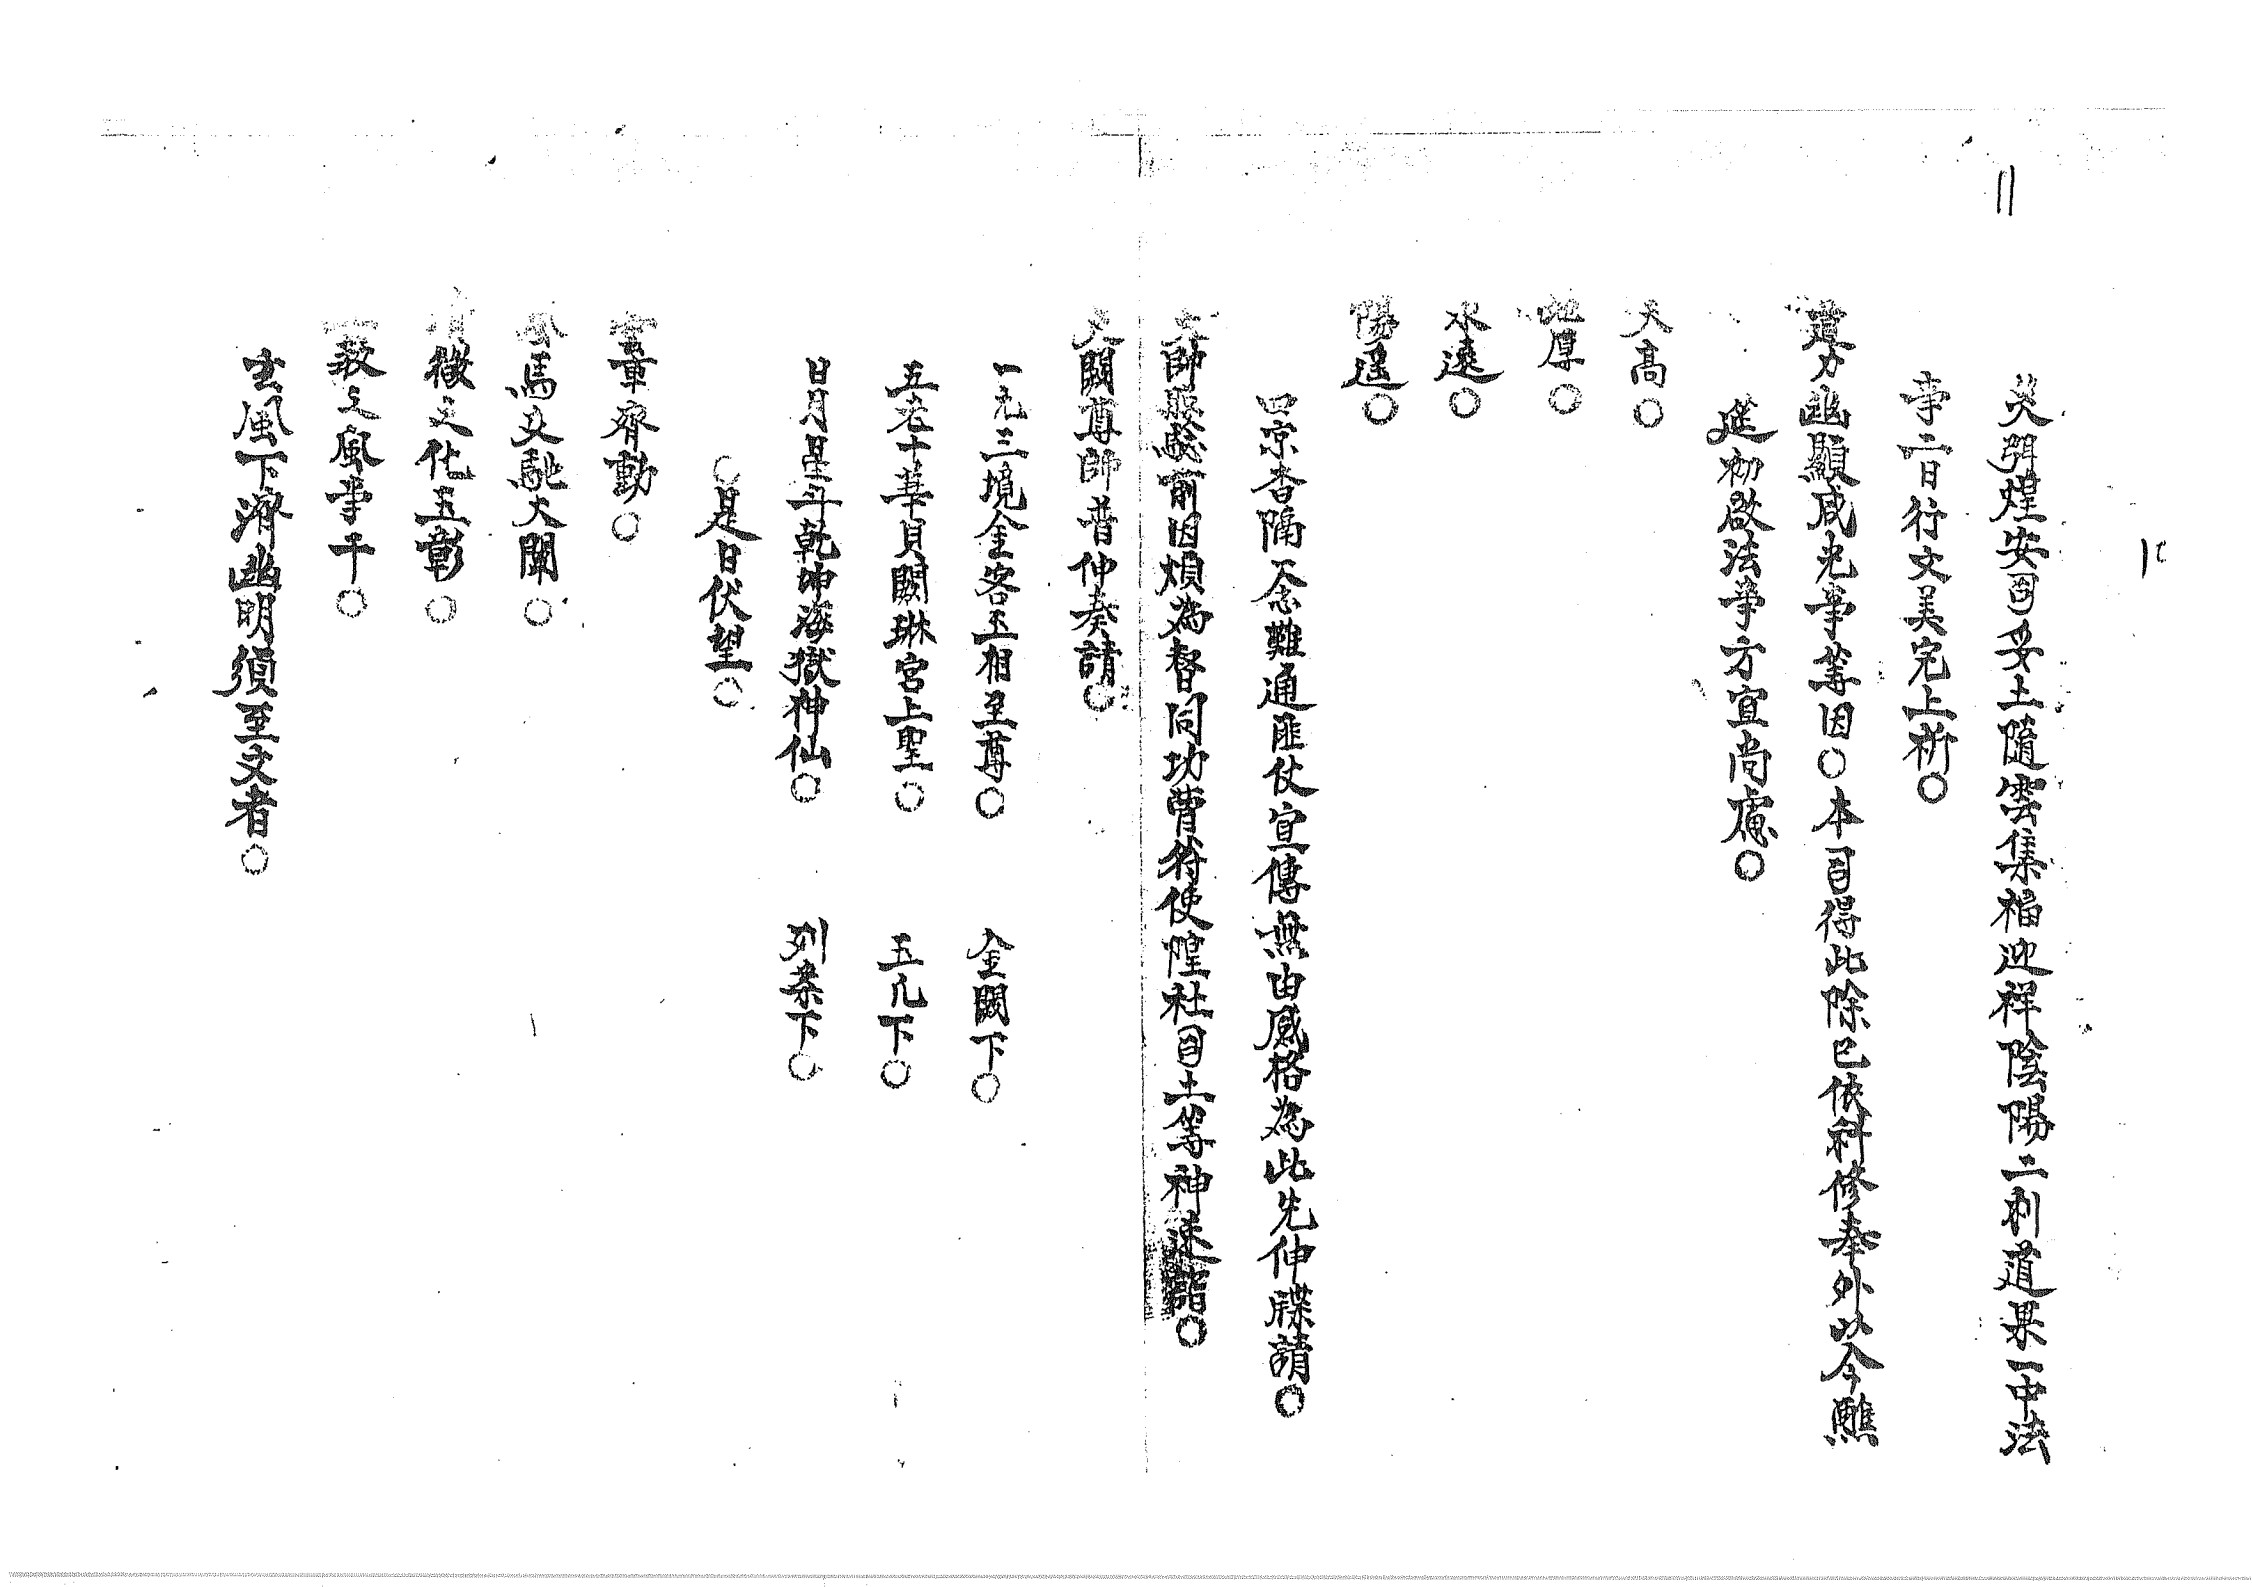 災弭煌安司妥土隨雲集福迎祥陰陽二利道果一中法
事二日行文美完上祈○
道力幽顯咸光事等因○本司得此除已依科修奉外以今醮
筵初啟法事方宣尚慮○
天高○
地厚○
水遠○
陽遥○
四京杳隔一念難通匪仗宣傳無由感格為此先伸牒請○
天師殿前因煩為督同功曹符使隍社司土等神遂詣○
天闕尊師普伸奏請○
一元三境金客玉相至尊○ 金闕下○
五老十華貝闕琳宮上聖○ 五几下○
日月星斗乾坤海嶽神仙○ 列案下○
○是日伏望○
雲車齊動○
風馬交馳大闡○
清徽文化五彰○
一教之風事干○
玄風下濟幽明須至文者○